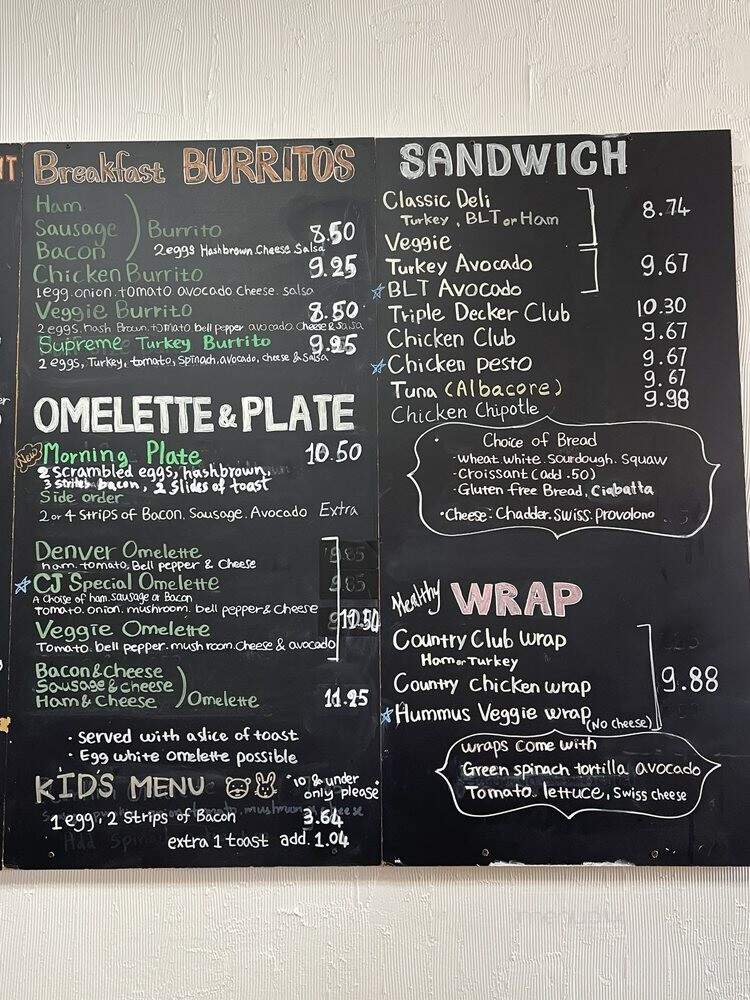 NT
Breakfast BURRITOS
Ham
Sausage
Bacon
Burrito 8.50
2 eggs Hashbrown Cheese Salsa
Chicken Burrito 9.25
1 egg. onion. tomato avocado Cheese. salsa
Veggie Burrito 8.50
2 eggs. hash Brown. tomato bell pepper avocado cheese & salsa
Supreme Turkey Burrito 9.95
2 eggs, Turkey, tomato, Spinach, avocado, cheese & Salsa
OMELETTE & PLATE
New
Morning Plate 10.50
2 scrambled eggs, hashbrown,
3 strips bacon, 2 slides of toast
Side order
2 or 4 Strips of Bacon. Sausage. Avocado Extra
Denver Omelette 9.85
ham. tomato, Bell pepper & Cheese
CJ Special Omelette 9.85
A choise of ham. sausage or Bacon
Tomato. onion. mushroom. bell pepper & Cheese
10.50
Veggie Omelette
Tomato. bell pepper. mushroom. cheese & avocado
Bacon & Cheese
Sausage & cheese
Ham & Cheese
Omelette 11.95
• Served with a slice of toast
• Egg white omelette possible
KID'S MENU "10 & under
only please"
1 egg, 2 Strips of Bacon 3.64
extra 1 toast add. 1.04
SANDWICH
Classic Deli
Turkey, BLT or Ham
8.74
Veggie
Turkey Avocado 9.67
BLT Avocado
Triple Decker Club 10.30
Chicken Club 9.67
Chicken pesto 9.67
Tuna (Albacore) 9.67
Chicken Chipotle 9.98
• Choice of Bread
- Wheat. white. Sourdough. Squaw
- Croissant (add .50)
- Gluten free Bread, Ciabatta
• Cheese: Chadder. Swiss. Provolono
Healthy WRAP
Country Club wrap
Ham or Turkey
Country Chicken wrap 9.88
Hummus Veggie wrap (No cheese)
wraps come with
Green spinach tortilla avocado
Tomato. lettuce, Swiss cheese
menupix